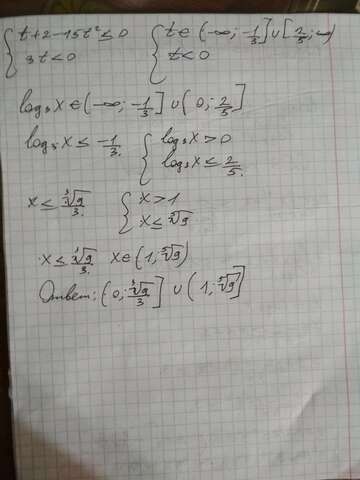 { t+2-15t² ≤ 0 { t ∈ (-∞; -1/3] ∪ [2/5; ∞)
{ 3t < 0 { t < 0
log₃x ∈ (-∞; -1/3] ∪ (0; 2/5]
log₃x ≤ -1/3. { log₃x > 0
{ log₃x ≤ 2/5.
x ≤ ∛9/3. { x > 1
{ x ≤ ⁵√9
x ≤ ∛9/3 x ∈ (1; ⁵√9)
Ответ: (0; ∛9/3] ∪ (1; ⁵√9]